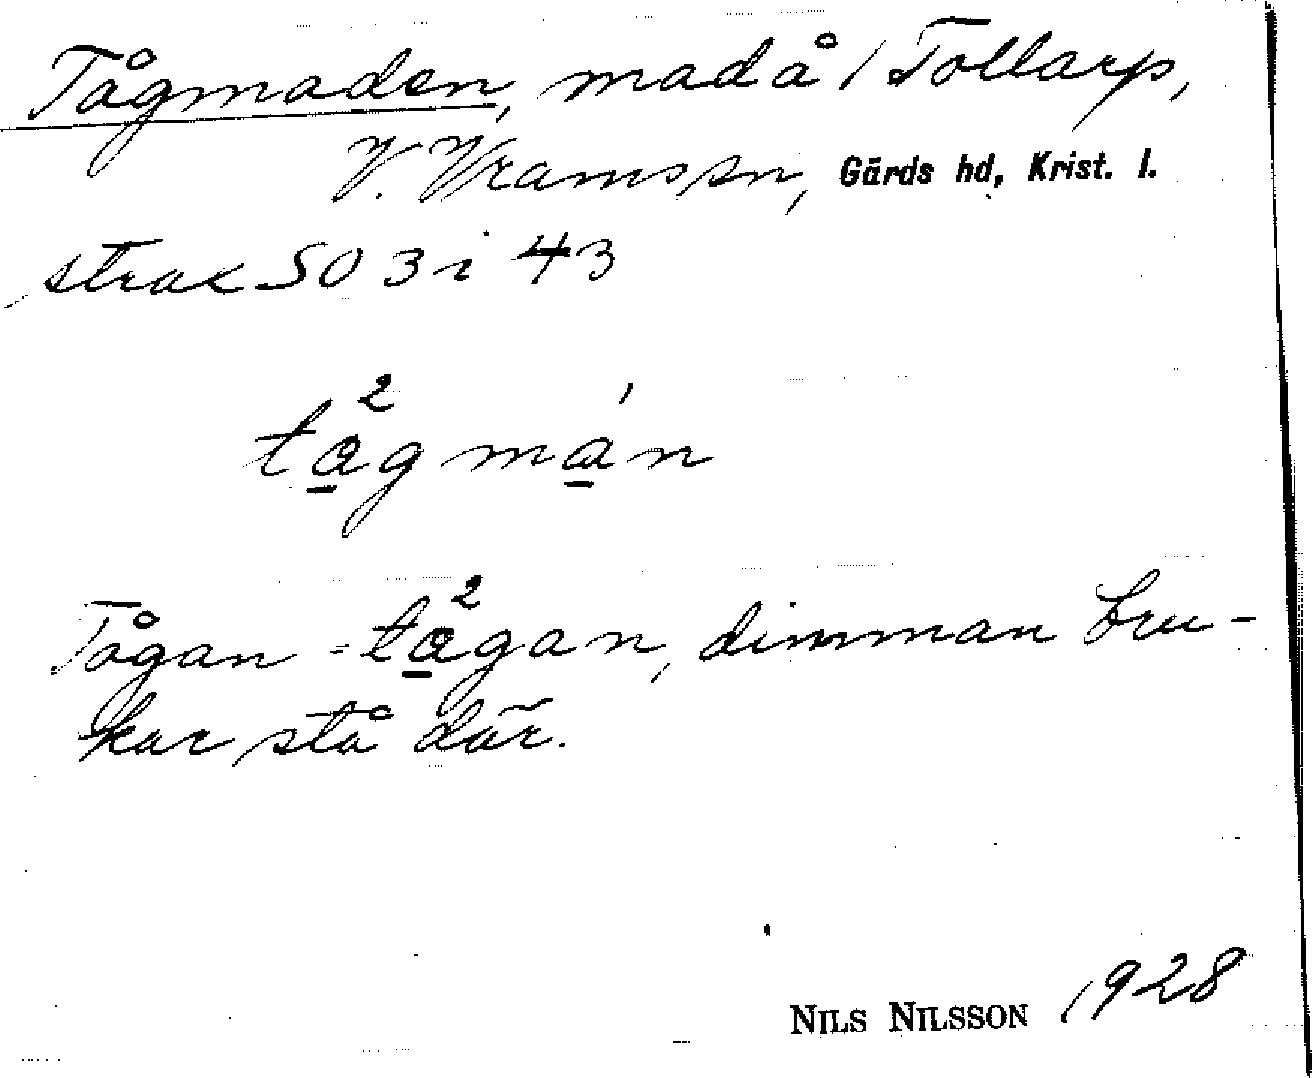 Tågmaden, mad å 1 Tollarp,
V. Vrams sn, Gärds hd, Krist. l.
strax SO 3 i 43
tå̲²gmá̲n
Tågan = tå̲²gan, dimman bru-
kar stå där.
NILS NILSSON 1928